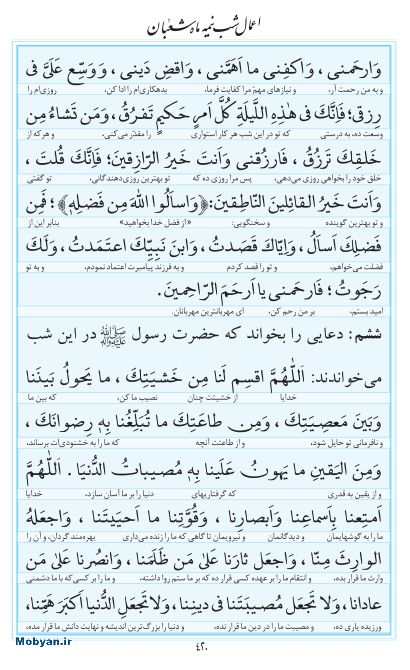 اعمال شب نیمه ماه شعبان
وَارحَمنی ، وَاکفِنی ما اَهَمَّنی ، وَاقضِ دَینی ، وَوَسِّع عَلَیَّ فی
و به من رحمت آر، و نیازهای مهم مرا کفایت فرما، بدهکاری‌ام را ادا کن، روزی‌ام را
رِزقی؛ فَاِنَّكَ فی هٰذِهِ اللَّیلَةِ کُلَّ اَمرٍ حَکیمٍ تَفرُقُ، وَمَن تَشاءُ مِن
وسعت ده، به درستی که تو در این شب هر کار استواری را مقدّر می‌کنی، و هر که از
خَلقِكَ تَرزُقُ، فَارزُقنی وَاَنتَ خَیرُ الرّازِقینَ؛ فَاِنَّكَ قُلتَ ،
خلق خود را بخواهی روزی می‌دهی، پس مرا روزی ده که تو بهترین روزی‌دهندگانی، تو گفتی
وَاَنتَ خَیرُ القائِلینَ النّاطِقینَ: ﴿وَاساَلُوا اللهَ مِن فَضلِهِ﴾ ؛ فَمِن
و تو بهترین گوینده و سخنگویی: «از فضل خدا بخواهید» بنابر این از
فَضلِكَ اَساَلُ، وَاِیّاكَ قَصَدتُ، وَابنَ نَبِیِّكَ اعتَمَدتُ، وَلَكَ
فضلت می‌خواهم، و تو را قصد کردم و به فرزند پیامبرت اعتماد نمودم، و به تو
رَجَوتُ؛ فَارحَمنی یا اَرحَمَ الرّاحِمینَ.
امید بستم، بر من رحم کن، ای مهربانترین مهربانان.
ششم: دعایی را بخواند که حضرت رسول ﷺ در این شب
می‌خواندند: اَللّٰهُمَّ اقسِم لَنا مِن خَشیَتِكَ ، ما یَحولُ بَینَنا
خدایا از خشیتت چنان نصیب ما کن، که بین ما
وَبَینَ مَعصِیَتِكَ ، وَمِن طاعَتِكَ ما تُبَلِّغُنا بِهِ رِضوانَكَ ،
و نافرمانی تو حایل شود، و از طاعتت آنچه که ما را به خشنودی‌ات برساند،
وَمِنَ الیَقینِ ما یَهونُ عَلَینا بِهِ مُصیباتُ الدُّنیا . اَللّٰهُمَّ
و از یقین به قدری که گرفتاریهای دنیا را بر ما آسان سازد، خدایا
اَمتِعنا بِاَسماعِنا وَاَبصارِنا ، وَقُوَّتِنا ما اَحیَیتَنا ، وَاجعَلهُ
ما را به گوشهایمان و دیدگانمان و نیرویمان تا گاهی که ما را زنده می‌داری بهره‌مند گردان، و آن را
الوارِثَ مِنّا ، وَاجعَل ثارَنا عَلیٰ مَن ظَلَمَنا ، وَانصُرنا عَلیٰ مَن
وارث ما قرار بده، و انتقام ما را بر عهده کسی قرار ده که بر ما ستم روا داشته، و ما را بر کسی که با ما دشمنی
عادانا، وَلا تَجعَل مُصیبَتَنا فی دینِنا، وَلا تَجعَلِ الدُّنیا اَکبَرَ هَمِّنا،
ورزیده یاری ده، و مصیبت ما را در دین ما قرار مده، و دنیا را بزرگ‌ترین اندیشه و نهایت دانش ما قرار مده،
۴۲۰
Mobyan.ir